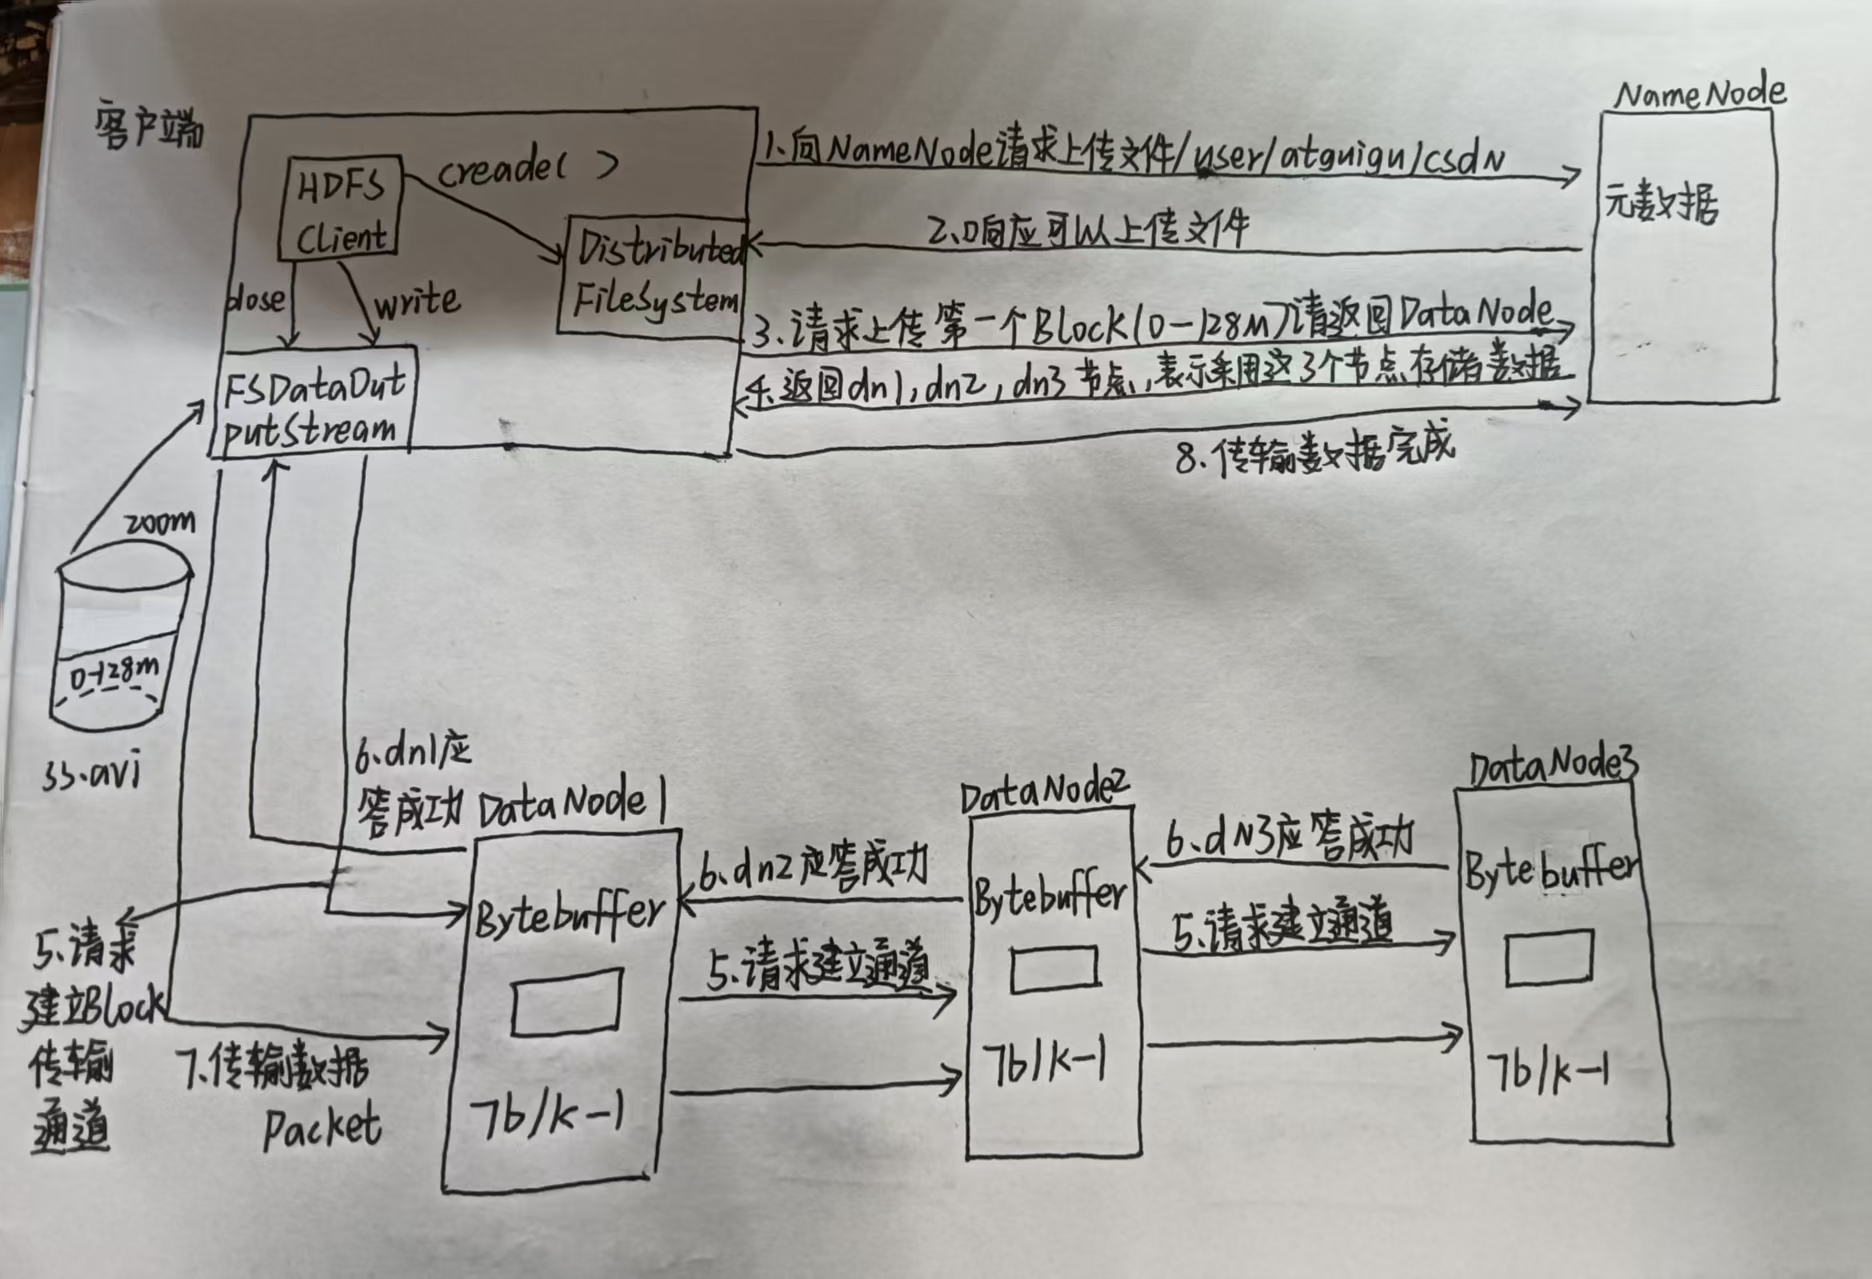 客户端
HDFS
Client
creade( )
Distributed
FileSystem
dose
write
FSDataOut
putStream
1.向NameNode请求上传文件/user/atguigu/csdN
2.响应可以上传文件
3.请求上传第一个Block(0-128M)请返回DataNode
4.返回dn1,dn2,dn3节点,表示采用这3个节点存储数据
8.传输数据完成
NameNode
元数据
200m
0-128m
ss.avi
6.dn1应
答成功
5.请求
建立Block
传输
通道
7.传输数据
Packet
DataNode1
Bytebuffer
7b/k-1
6.dn2应答成功
5.请求建立通道
DataNode2
Bytebuffer
7b/k-1
6.dN3应答成功
5.请求建立通道
DataNode3
Bytebuffer
7b/k-1